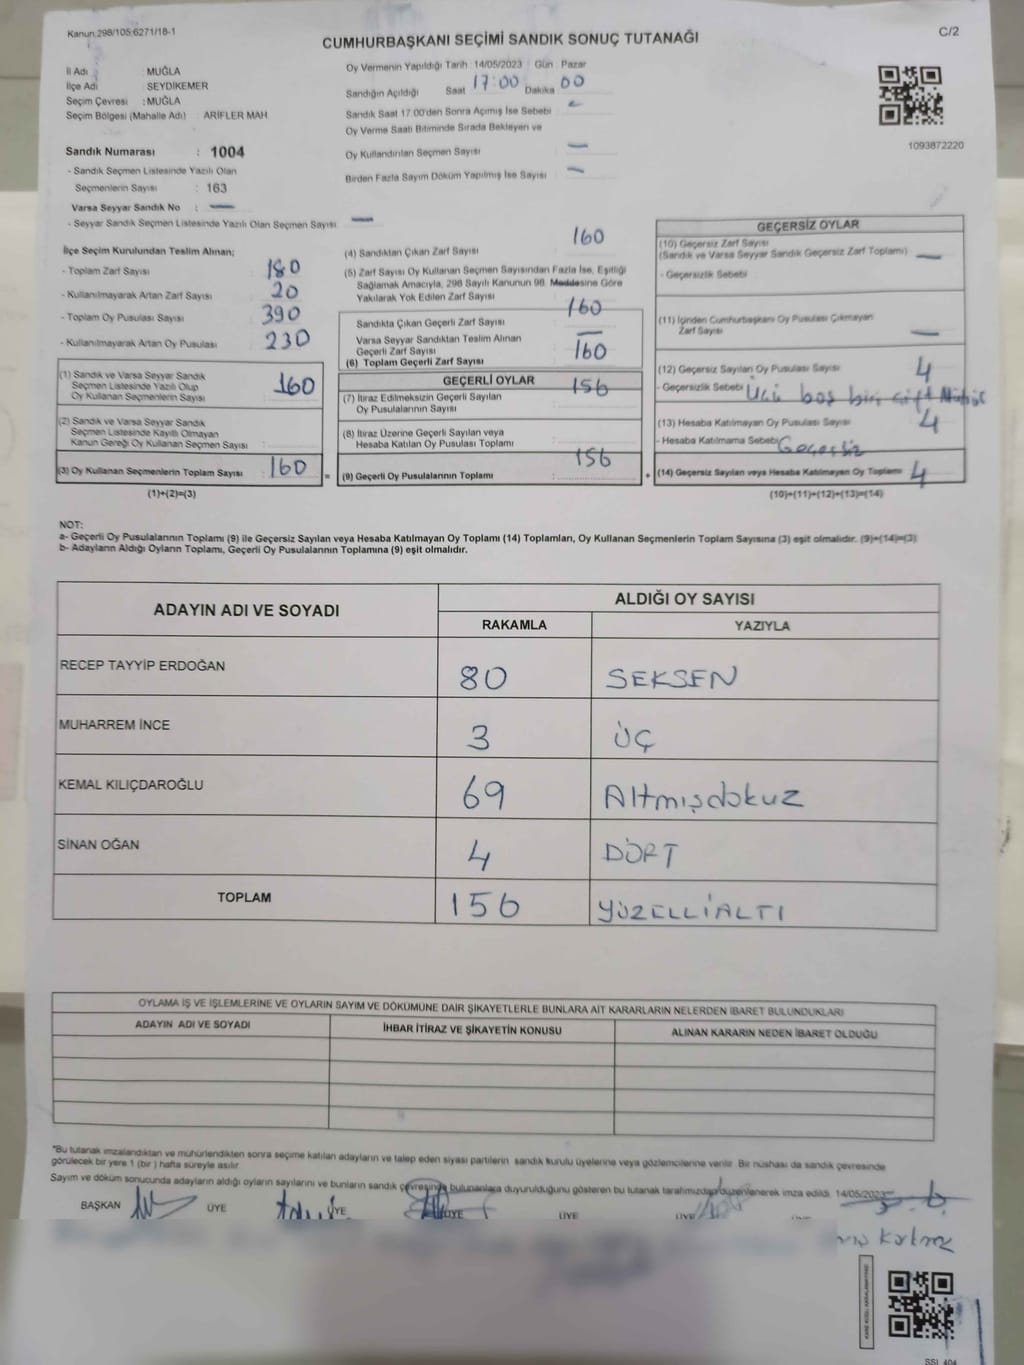 Kanun.298/105;6271/18-1
C/2
CUMHURBAŞKANI SEÇİMİ SANDIK SONUÇ TUTANAĞI
İl Adı : MUĞLA
İlçe Adı SEYDİKEMER
Seçim Çevresi : MUĞLA
Seçim Bölgesi (Mahalle Adı) : ARİFLER MAH.
Sandık Numarası : 1004
- Sandık Seçmen Listesinde Yazılı Olan
Seçmenlerin Sayısı : 163
Varsa Seyyar Sandık No : —
- Seyyar Sandık Seçmen Listesinde Yazılı Olan Seçmen Sayısı —
Oy Vermenin Yapıldığı Tarih :14/05/2023 Gün : Pazar
Sandığın Açıldığı Saat 17:00 Dakika 00
Sandık Saat 17.00'den Sonra Açımış İse Sebebi —
Oy Verme Saati Bitiminde Sırada Bekleyen ve
Oy Kullandırılan Seçmen Sayısı —
Birden Fazla Sayım Döküm Yapılmış İse Sayısı —
1093872220
İlçe Seçim Kurulundan Teslim Alınan;
- Toplam Zarf Sayısı : 180
- Kullanılmayarak Artan Zarf Sayısı : 20
- Toplam Oy Pusulası Sayısı : 390
- Kullanılmayarak Artan Oy Pusulası : 230
(1) Sandık ve Varsa Seyyar Sandık
Seçmen Listesinde Yazılı Olup
Oy Kullanan Seçmenlerin Sayısı : 160
(2) Sandık ve Varsa Seyyar Sandık
Seçmen Listesinde Kayıtlı Olmayan
Kanun Gereği Oy Kullanan Seçmen Sayısı :
(3) Oy Kullanan Seçmenlerin Toplam Sayısı : 160
(1)+(2)=(3)
=
(4) Sandıktan Çıkan Zarf Sayısı : 160
(5) Zarf Sayısı Oy Kullanan Seçmen Sayısından Fazla İse, Eşitliği
Sağlamak Amacıyla, 298 Sayılı Kanunun 98. Maddesine Göre
Yakılarak Yok Edilen Zarf Sayısı :
Sandıkta Çıkan Geçerli Zarf Sayısı : 160
Varsa Seyyar Sandıktan Teslim Alınan
Geçerli Zarf Sayısı : —
(6) Toplam Geçerli Zarf Sayısı : 160
GEÇERLİ OYLAR
(7) İtiraz Edilmeksizin Geçerli Sayılan
Oy Pusulalarının Sayısı : 156
(8) İtiraz Üzerine Geçerli Sayılan veya
Hesaba Katılan Oy Pusulası Toplamı :
(9) Geçerli Oy Pusulalarının Toplamı : 156
+
GEÇERSİZ OYLAR
(10) Geçersiz Zarf Sayısı
(Sandık ve Varsa Seyyar Sandık Geçersiz Zarf Toplamı) : —
- Geçersizlik Sebebi :
(11) İçinden Cumhurbaşkanı Oy Pusulası Çıkmayan
Zarf Sayısı : —
(12) Geçersiz Sayılan Oy Pusulası Sayısı : 4
- Geçersizlik Sebebi : Üçü boş biri çift Mühür
(13) Hesaba Katılmayan Oy Pusulası Sayısı : 4
- Hesaba Katılmama Sebebi : Geçersiz
(14) Geçersiz Sayılan veya Hesaba Katılmayan Oy Toplamı : 4
(10)+(11)+(12)+(13)=(14)
NOT:
a- Geçerli Oy Pusulalarının Toplamı (9) ile Geçersiz Sayılan veya Hesaba Katılmayan Oy Toplamı (14) Toplamları, Oy Kullanan Seçmenlerin Toplam Sayısına (3) eşit olmalıdır. (9)+(14)=(3)
b- Adayların Aldığı Oyların Toplamı, Geçerli Oy Pusulalarının Toplamına (9) eşit olmalıdır.
ADAYIN ADI VE SOYADI
ALDIĞI OY SAYISI
RAKAMLA YAZIYLA
RECEP TAYYİP ERDOĞAN 80 SEKSEN
MUHARREM İNCE 3 ÜÇ
KEMAL KILIÇDAROĞLU 69 Altmışdokuz
SİNAN OĞAN 4 DÖRT
TOPLAM 156 YÜZELLİALTI
OYLAMA İŞ VE İŞLEMLERİNE VE OYLARIN SAYIM VE DÖKÜMÜNE DAİR ŞİKAYETLERLE BUNLARA AİT KARARLARIN NELERDEN İBARET BULUNDUKLARI
ADAYIN ADI VE SOYADI İHBAR İTİRAZ VE ŞİKAYETİN KONUSU ALINAN KARARIN NEDEN İBARET OLDUĞU
*Bu tutanak imzalandıktan ve mühürlendikten sonra seçime katılan adayların ve talep eden siyasi partilerin sandık kurulu üyelerine veya gözlemcilerine verilir. Bir nüshası da sandık çevresinde
görülecek bir yere 1 (bir ) hafta süreyle asılır.
Sayım ve döküm sonucunda adayların aldığı oyların sayılarını ve bunların sandık çevresinde bulunanlara duyurulduğunu gösteren bu tutanak tarafımızdan düzenlenerek imza edildi. 14/05/2023
BAŞKAN ÜYE ÜYE ÜYE ÜYE ÜYE